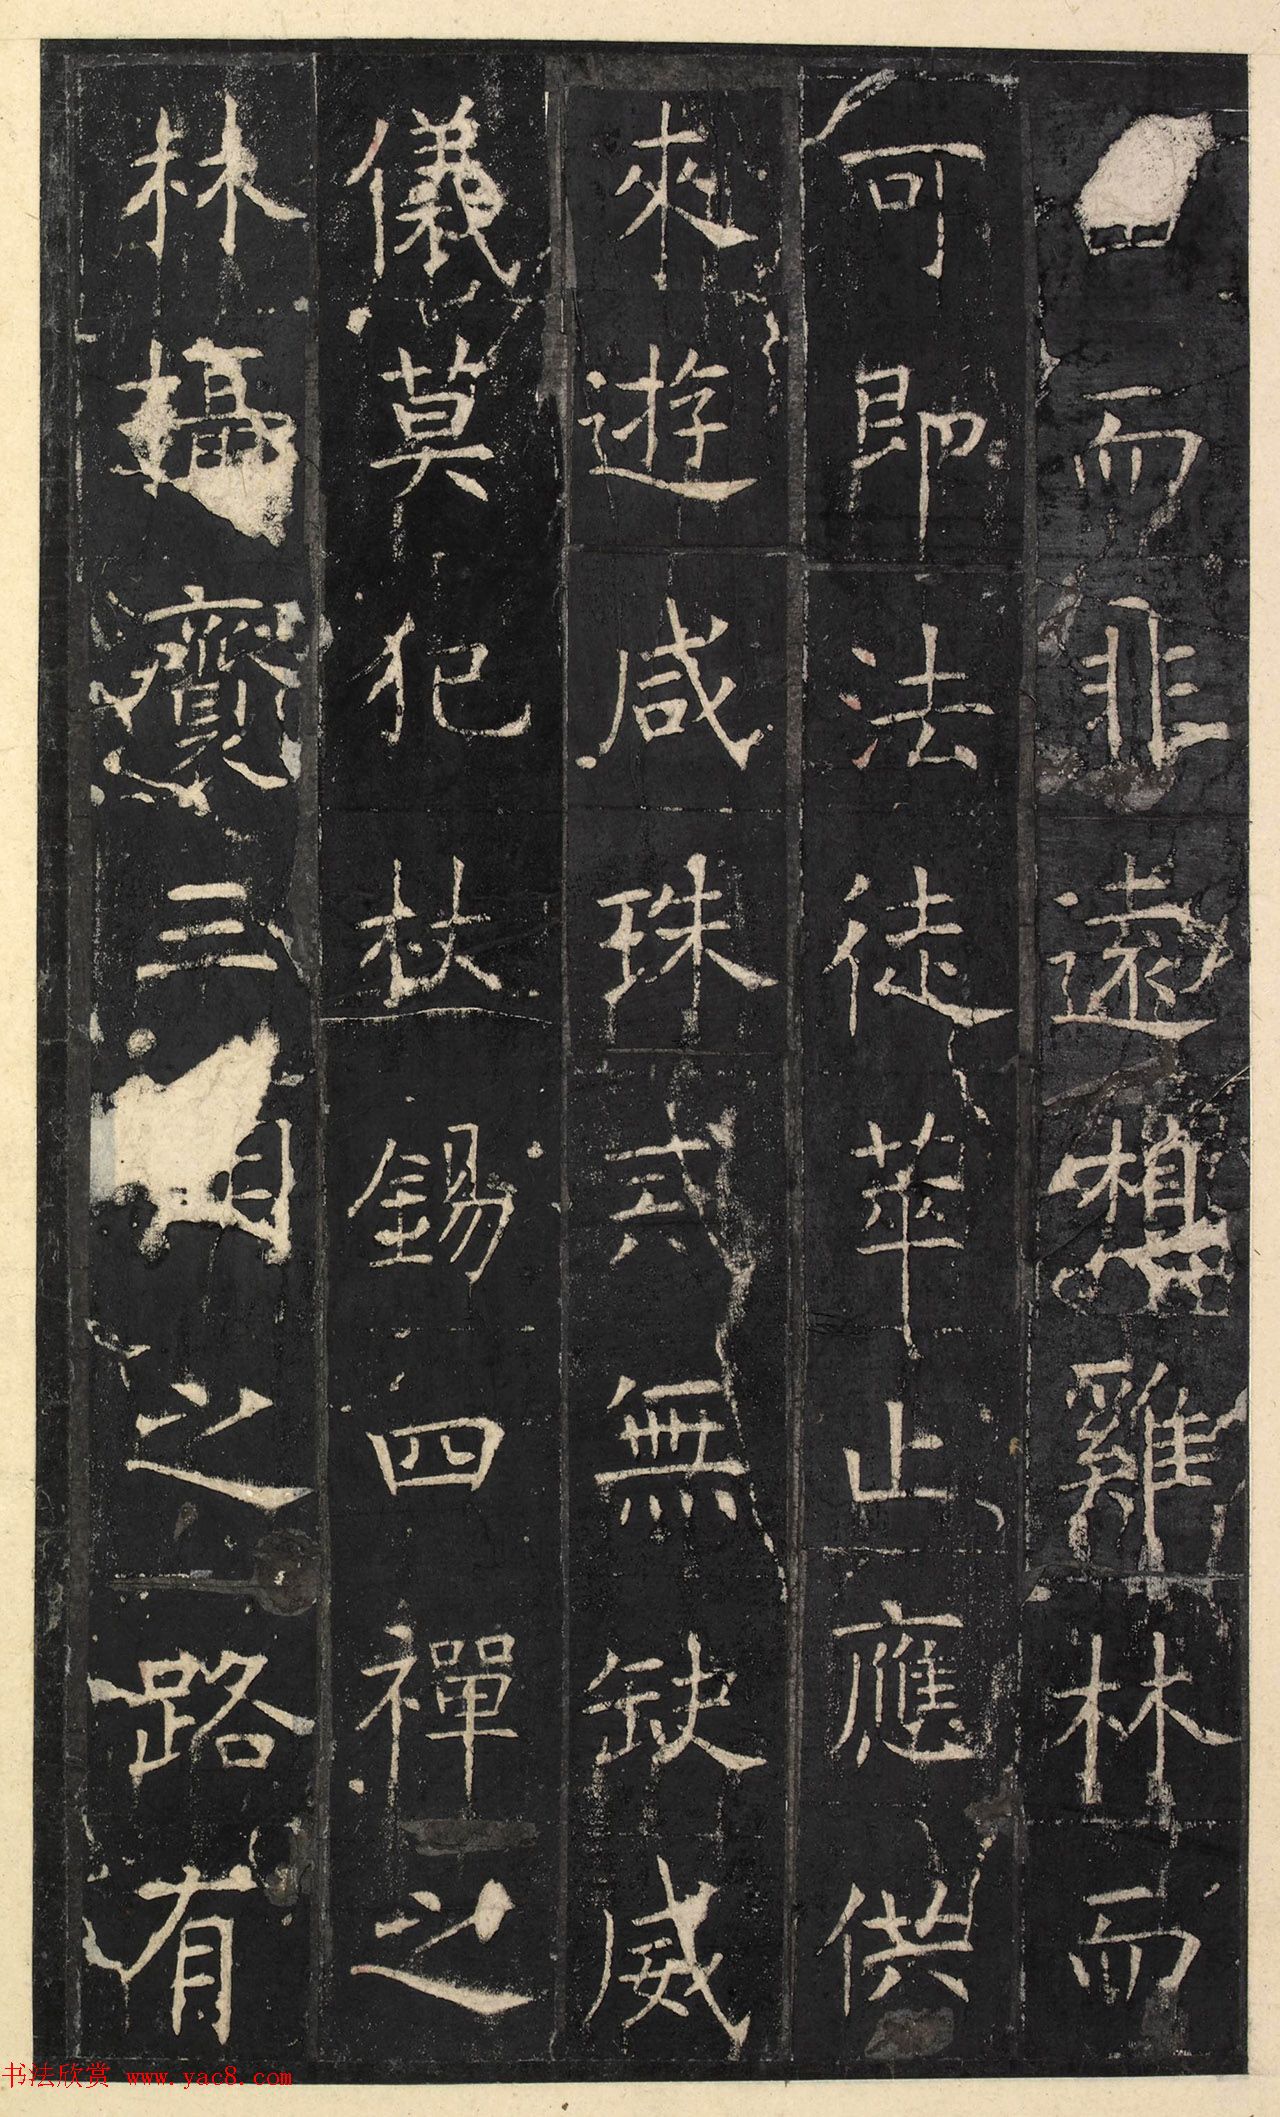 而非遠想雞林而
可即法徒萃止應供
來遊咸珠貳無缺威
儀莫犯杖錫四禪之
林攝齋三明之路有
书法欣赏 www.yac8.com